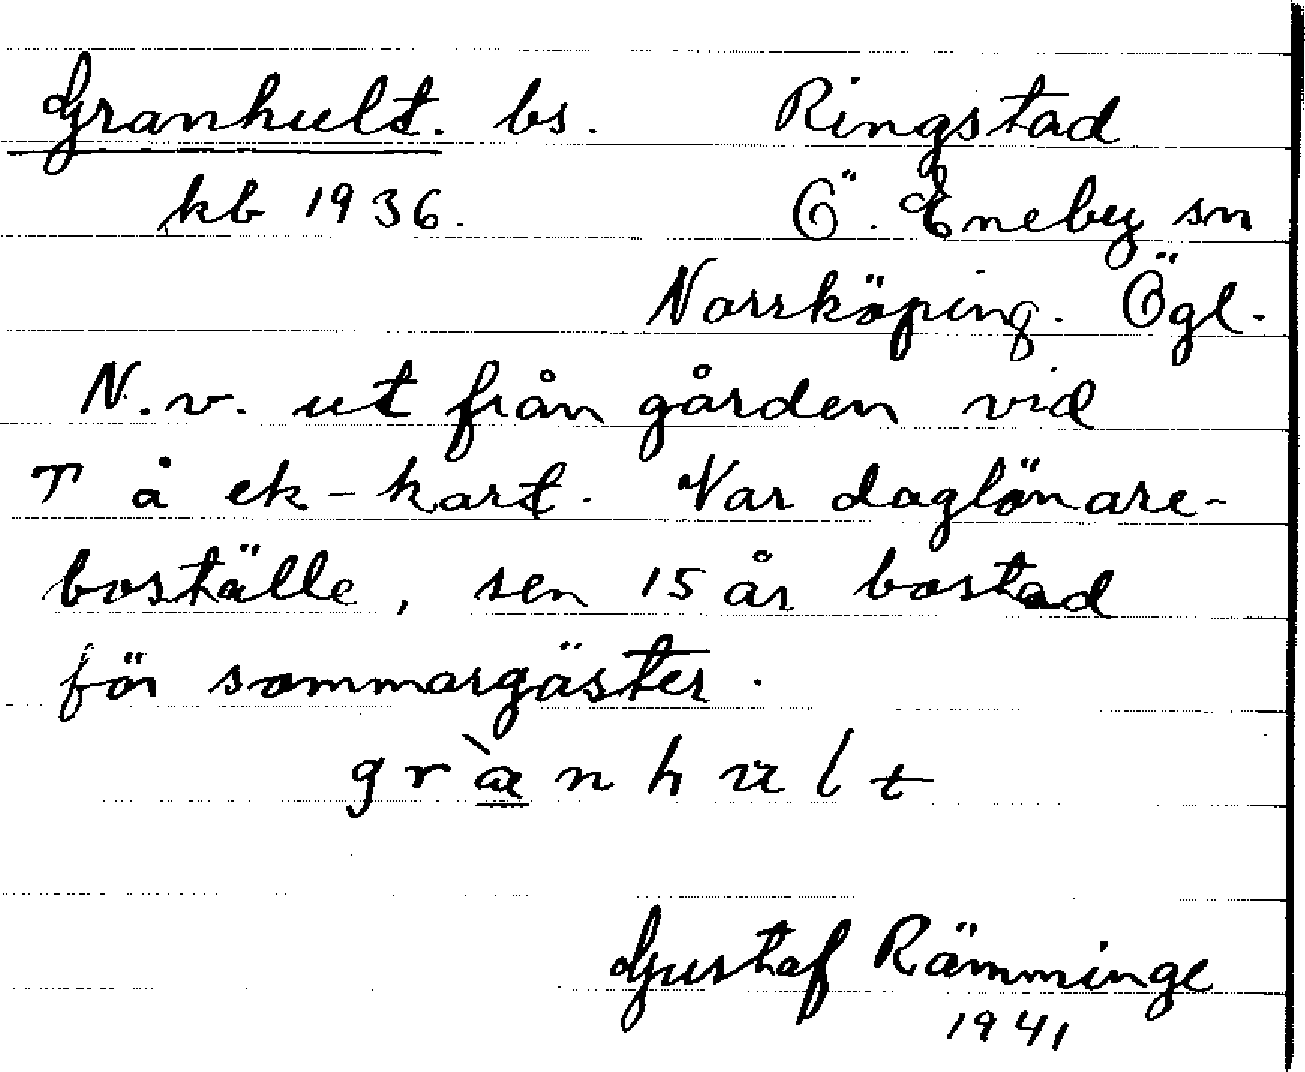 Granhult. bs. Ringstad
kb 1936. Ö. Eneby sn
Norrköping. Ögl.
N.v. ut från gården vid
T å ek-kart. Var daglönare-
boställe, sen 15 år bostad
för sommargäster.
grànhult
Gustaf Rämminge
1941